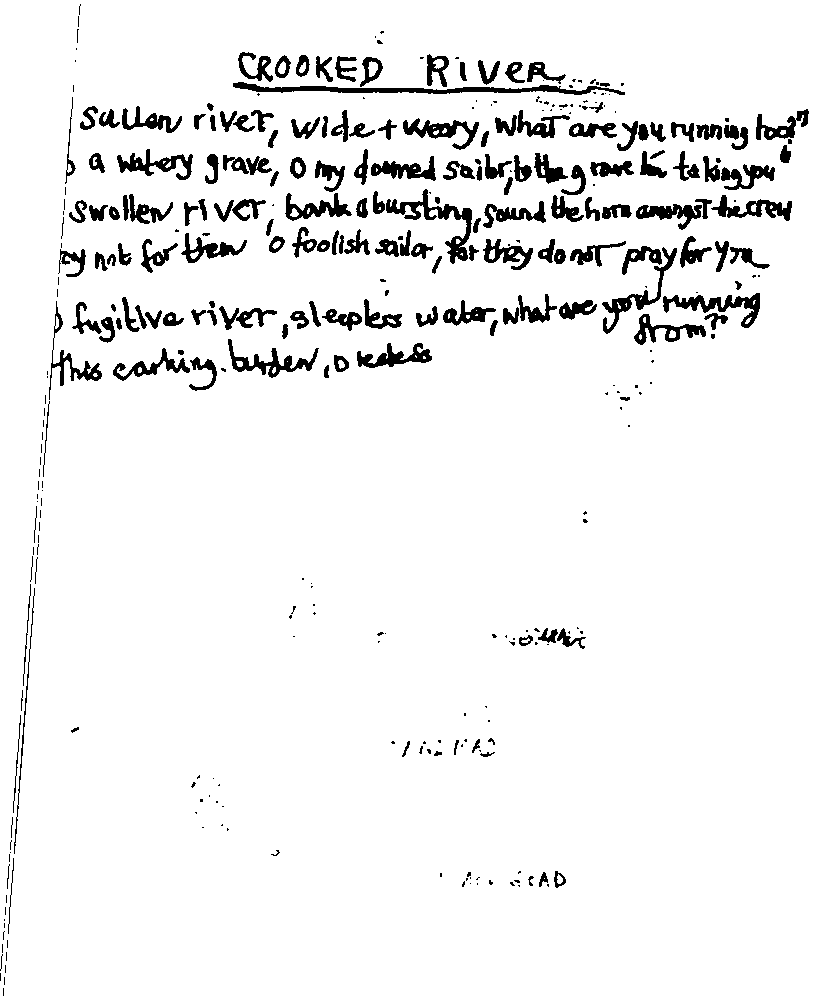 CROOKED RIVER
Sullen river, wide + weary, what are you running too?"
a watery grave, O my doomed sailor, to the grave I'm taking you"
Swollen river, banks a bursting, sound the horn amongst the crew
not for them 'o foolish sailor, for they do not pray for you
fugitive river, sleepless water, what are you running
from?"
this carking burden, O